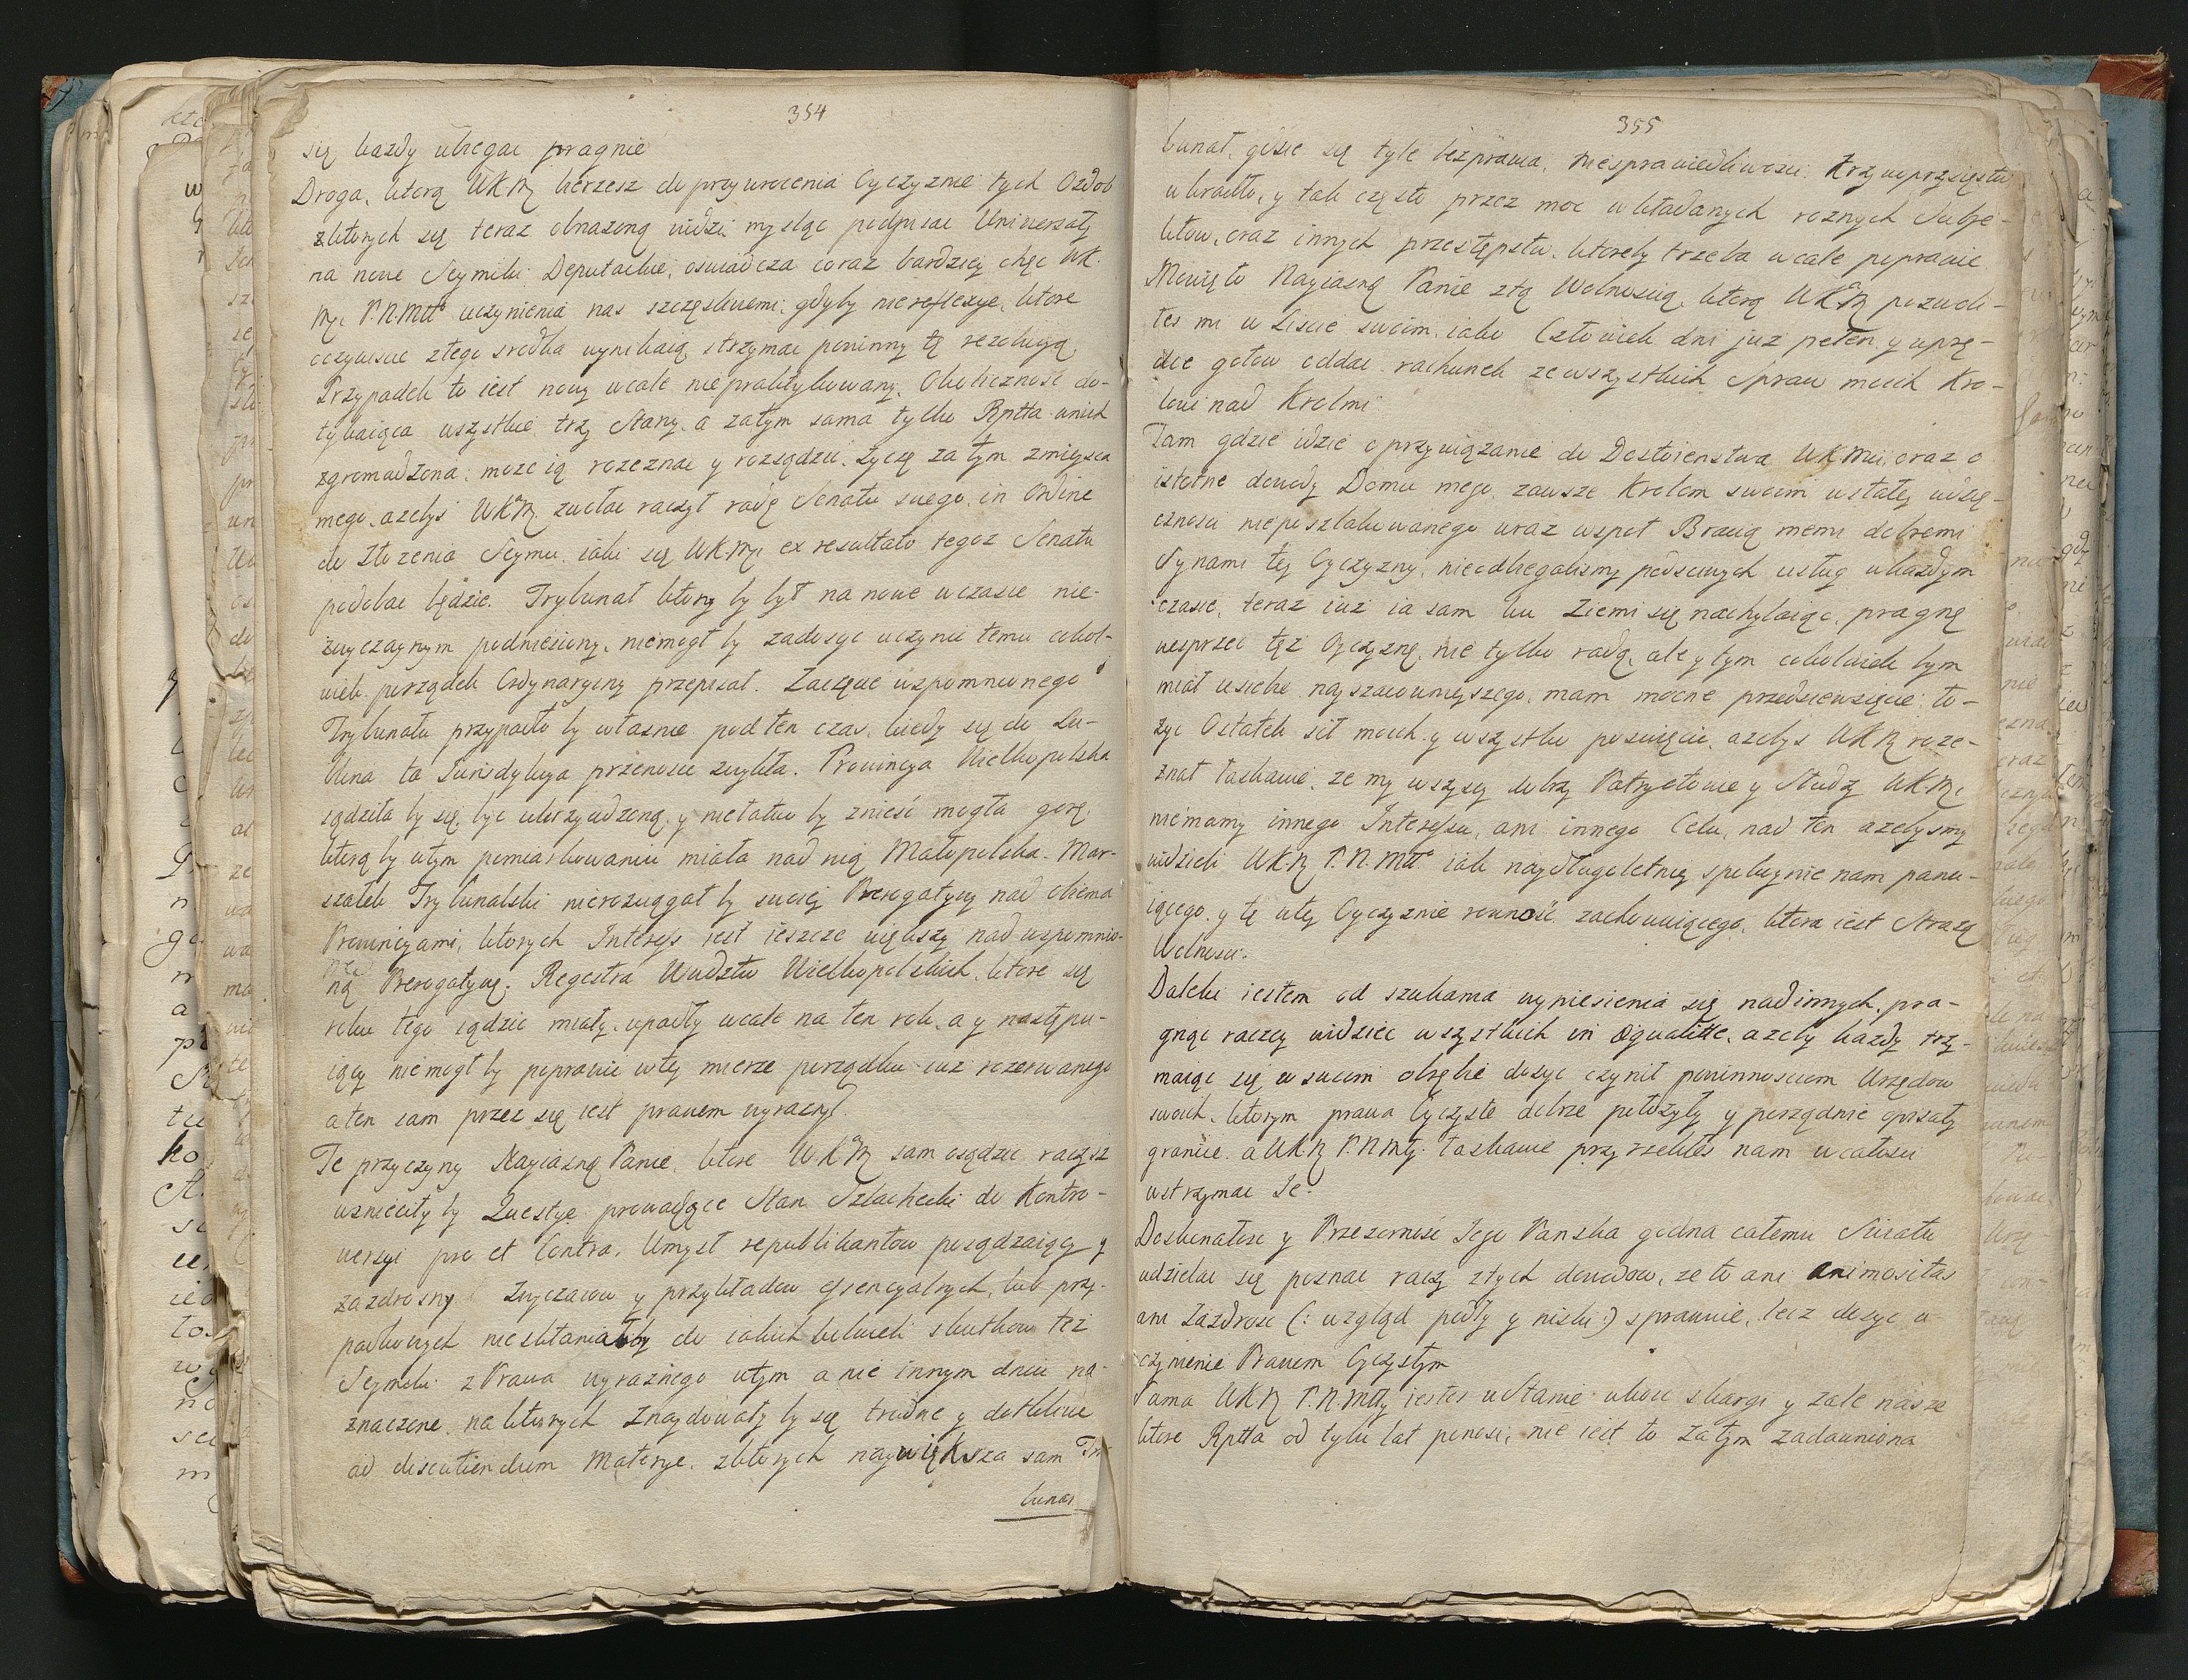 354
się kazdy ubiegac pragnie
Droga, ktorą WKM bierzesz do przywrocenia Oyczyznie tych Ozdob
z ktorych się teraz obnazoną widzi mysląc podpisac Uniwersały
na nowe Seymiki Deputackie, oswiadcza coraz bardziey chęc WK.
My P.N.Mtt uczynienia nas szczęsliwemi, gdyby nie reflexye, ktore
oczywiscie z tego srodka wynikaią strzymac powinny tę rezolucyą
Przypadek to iest nowy wcale nie praktykowany, Okolicznosc do-
tykaiąca wszystkie trzy Stany, a zatym sama tylko Rptta wnich
zgromadzona, moze ią rozeznac y rozsądzic. Zyczę za tym z mieysca
mego, azebys WKM zwołac raczył radę Senatu swego, in Ordine
do złozenia Seymu, iak się WKMci ex resultato tegoz Senatu
podobac będzie. Trybunał ktory by był na nowo w czasie nie-
zwyczaynym podniesiony, niemogł by zadosyc uczynic temu cokol-
wiek porządek Ordynaryiny przepisał. Zaczęcie wspomnionego
Trybunału przypadło by własnie pod ten czas, kiedy się do Lu-
blina ta Jurisdykcya przenosic zwykła. Prowincya Wielkopolska
sądziła by się byc ukrzywdzoną y niełatwo by zniesć mogła gorę
ktorą by w tym pomiarkowaniu miała nad nią Małopolska. Mar-
szałek Trybunalski nierozciągał by swoiey Prerogatywy nad obiema
Prowincyami, ktorych Interess iest ieszcze większy nad wspomnio-
ną Prerogatywę. Regestra Wudztw Wielkopolskich, ktore się
roku tego sądzic miały, upadły wcale na ten rok, a y następu-
iący niemogł by poprawic w tey mierze porządku iuz rozerwanego
a ten sam przez się iest prawem wyraznym.
Te przyczyny Nayiasnę Panie, ktore WKM sam osądzic raczysz
wznieciły by Questye prowadzące Stan Szlachecki do Kontro-
wersyi pro et Contra. Umysł republikantow posądzaiący y
zazdrosny Zwyczaiow y przykładow essencyalnych, lub przy-
padkowych niesklaniałby do iakichkolwiek skutkow też
Seymiki z Prawa wyraznego w tym a nie innym dniu na-
znaczone, na ktorych znaydowały by się trudne y dotkliwe
ad discutiendum Materye, z ktorych naywiększa sam Try
bunał
355
bunał, gdzie się tyle bezprawia, niesprawiedliwosci, Krzywoprzysięstw
wkradło, y tak często przez moc wkładanych roznych Subje-
ktow, oraz innych przestępstw, ktoreby trzeba wcale poprawic
Mowię to Nayiasnę Panie z tą Wolnoscią, ktorą WKM pozwoli-
łes mi w Liscie swoim, iako Człowiek dni już pełen, y wprę-
dce gotow oddac rachunek ze wszystkich spraw moich Kro-
lowi nad Krolmi
Tam gdzie idzie o przywiązanie do Dostoienstwa WKMci, oraz o
istotne dowody Domu mego, zawsze Krolom swoim w stałey wdzię-
cznosci nieposzlakowanego wraz wspoł Bracią memi dobremi
Synami tey Oyczyzny, nieodbiegalismy podsciwych usług w kazdym
czasie, teraz iuz ia sam ku Ziemi się nachylaiąc, pragnę
wesprzec tęż Oyczyznę, nie tylko radą, ale y tym cokolwiek bym
miał u siebie nayszacownieyszego, mam mocne przedsiewzięcie ło-
zyc Ostatek sił moich y wszystko poswięcic, azebys WKM roze-
znał łaskawie, ze my wszyscy dobrzy Patryotowie y Słudzy WK.Mci
niemamy innego Interessu, ani innego Celu, nad ten azebysmy
widzieli WKM P.N.Mtt iak naydługoletniey spokoynie nam panu-
iącego, y tę w tey Oyczyznie rownosć zachowuiącego, ktora iest Strazą
Wolnosci.
Daleki iestem od szukania wyniesienia się nad innych, pra-
gnąc raczey widziec wszystkich in Æqualitate, azeby kazdy trzy-
maiąc się w swoim obrębie dosyc czynił powinnosciom Urzędow
swoich, ktorym prawa Oyczyste dobrze położyły y porządnie opisały
granice, a WKM P.N.Mty. łaskawie przyrzekłes nam w całosci
utrzymac Je.
Doskonałosc y Przezornosć Jego Panska godna całemu Swiatu
udzielac się poznac raczy z tych dowodow, ze to ani Animositas
ani Zazdrosc (: wzgląd podły y niski:) sprawuie, lecz dosyc u-
czynienie Prawom Oyczystym
Sama WKM P.N.Mtty iestes w Stanie ukoic skargi y zale nasze
ktore Rptta od tylu lat ponosi, nie iest to Zatym zadawniona